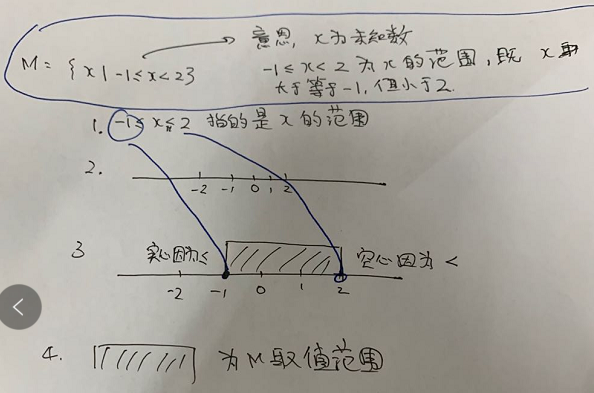 M = { x | -1 ≤ x < 2 }
意思, x 为未知数
-1 ≤ x < 2 为 x 的范围, 既 x
大于等于 -1, 但小于 2.
1. -1 ≤ x ≤ 2 指的是 x 的范围
2.
-2 -1 0 1 2
3
实心因为 ≤
空心因为 <
-2 -1 0 1 2
4. 为 M 取值范围